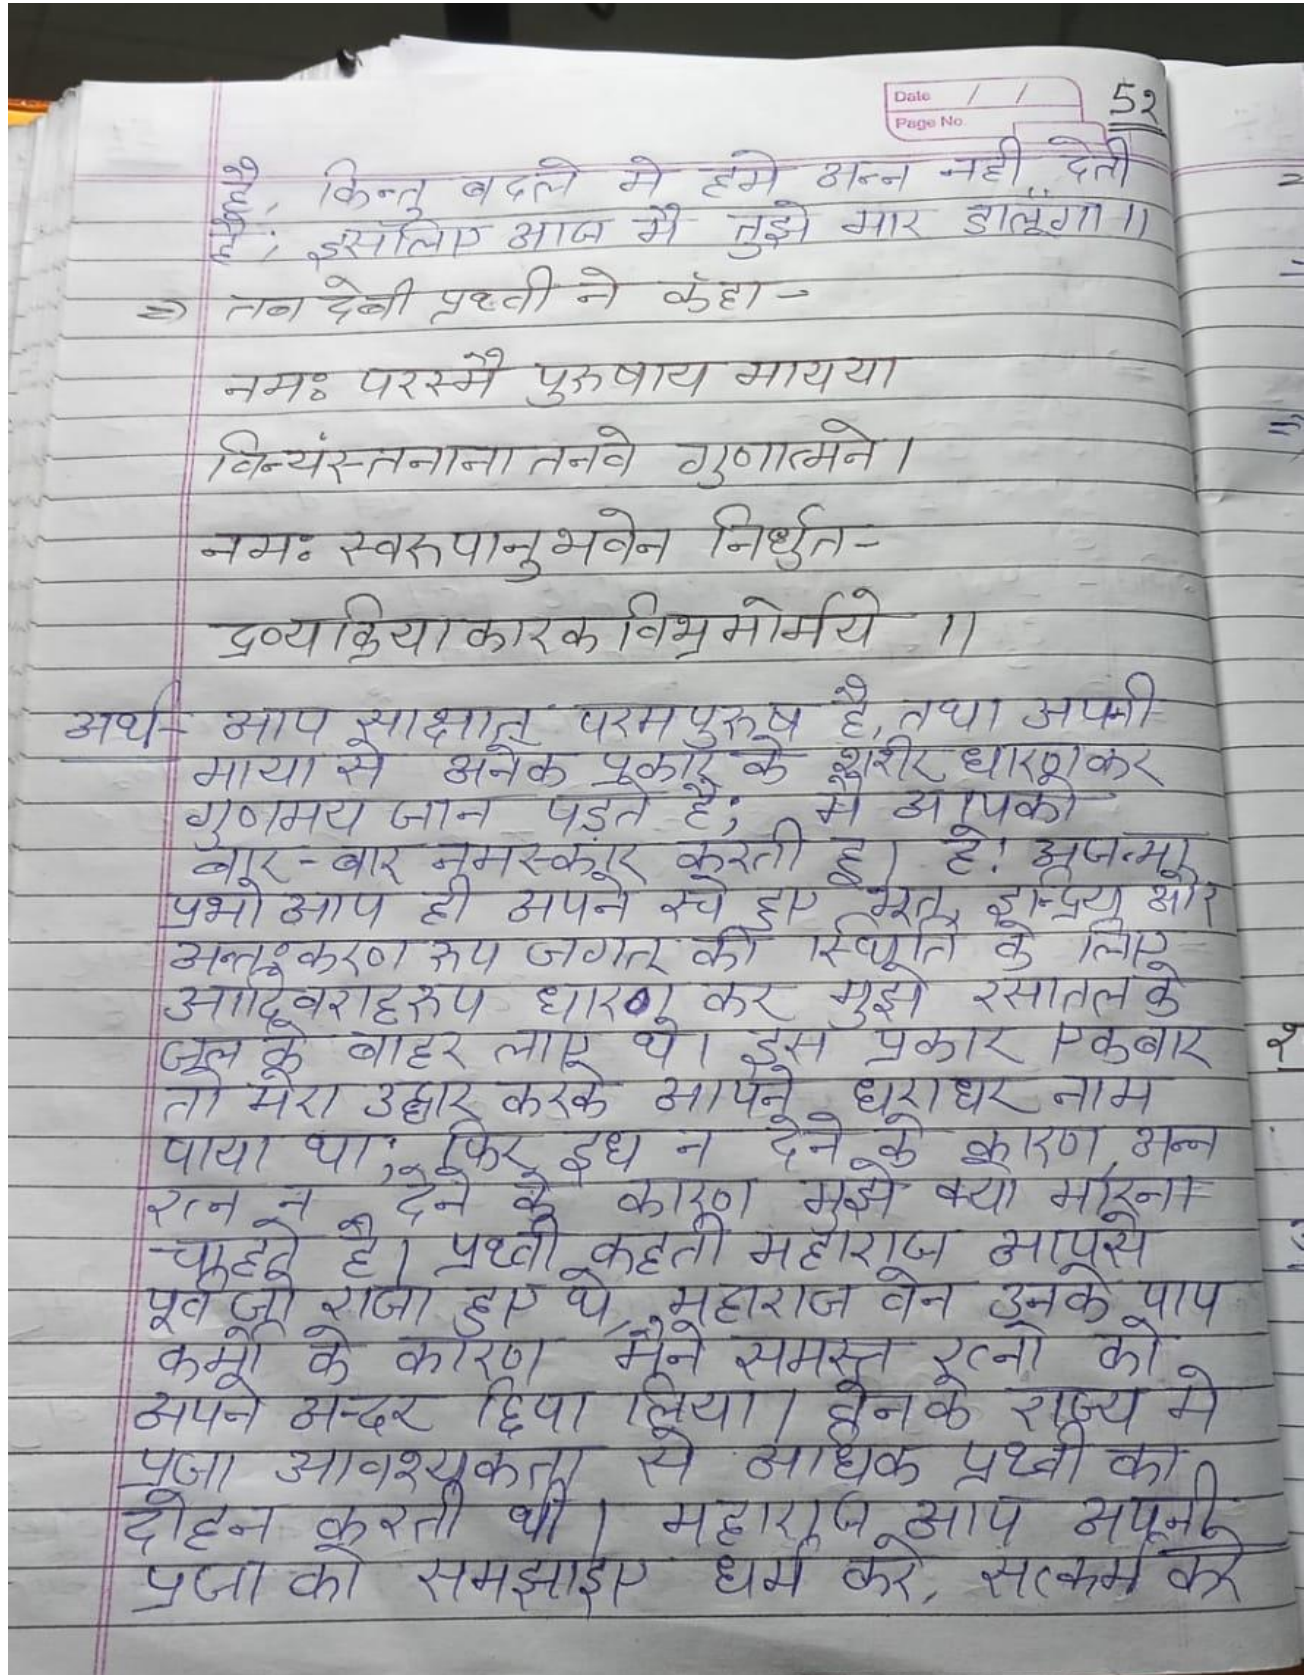 Date / /
Page No.
52
है, किन्तु बदले मे हमे अन्न नही देती
है; इसलिए आज मै तुझे मार डालूंगा॥
⇒ तब देबी प्रथ्वी ने कहा -
नमः परस्मै पुरुषाय मायया
विन्यस्तनाना तनवे गुणात्मने।
नमः स्वरुपानुभवेन निर्धुत-
द्रव्यक्रियाकारकविभ्रमोर्मये ॥
अर्थ- आप साक्षात् परमपुरुष है, तथा अपनी
माया से अनेक प्रकार के शरीर धारणकर
गुणमय जान पड़ते है; मै आपको
बार-बार नमस्कार करती हू। हे! अजन्मा
प्रभो आप ही अपने रचे हुए भूत, इन्द्रिय और
अन्तःकरण रुप जगत की स्थिति के लिए
आदिवराहरुप धारण कर मुझे रसातल के
जल के बाहर लाए थे। इस प्रकार एकबार
तो मेरा उद्धार करके आपने धराधर नाम
पाया था; फिर दुध न देने के कारण, अन्न
रत्न न देने के कारण मुझे क्यो मारना
चाहते है। प्रथ्वी कहती महाराज आपसे
पूर्व जो राजा हुए थे, महाराज वेन उनके पाप
कर्मो के कारण मैने समस्त रत्नो को
अपने अन्दर छिपा लिया। वेनके राज्य मे
प्रजा आवश्यकता से अधिक प्रथ्वी का
दोहन करती थी। महाराज आप अपनी
प्रजा को समझाइए धर्म करे, सत्कर्म करे